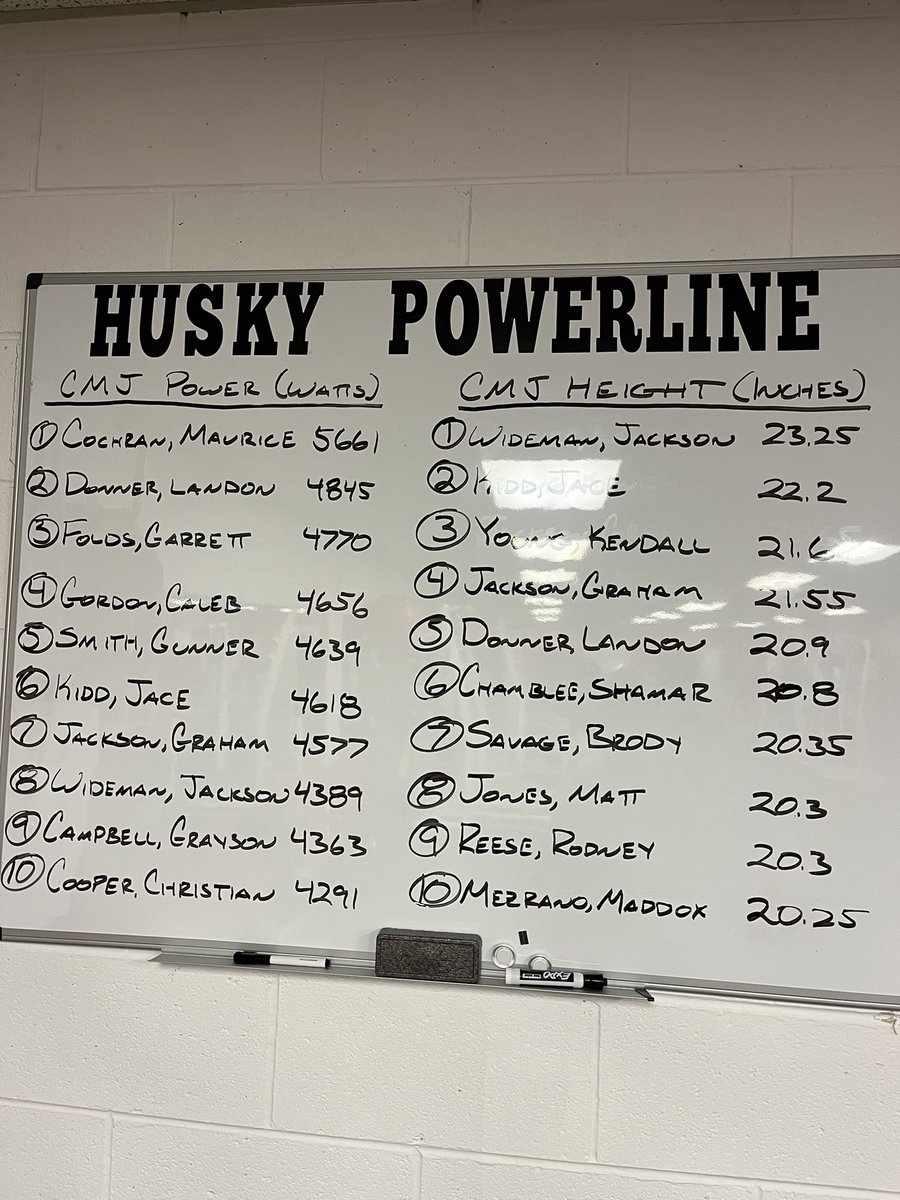 HUSKY POWERLINE
CMJ POWER (WATTS)
① COCHRAN, MAURICE 5661
② DONNER, LANDON 4845
③ FOLDS, GARRETT 4770
④ GORDON, CALEB 4656
⑤ SMITH, GUNNER 4639
⑥ KIDD, JACE 4618
⑦ JACKSON, GRAHAM 4577
⑧ WIDEMAN, JACKSON 4389
⑨ CAMPBELL, GRAYSON 4363
⑩ COOPER, CHRISTIAN 4291
CMJ HEIGHT (INCHES)
① WIDEMAN, JACKSON 23.25
② KIDD, JACE 22.2
③ YOUNG, KENDALL 21.6
④ JACKSON, GRAHAM 21.55
⑤ DONNER LANDON 20.9
⑥ CHAMBLEE, SHAMAR 20.8
⑦ SAVAGE, BRODY 20.35
⑧ JONES, MATT 20.3
⑨ REESE, RODNEY 20.3
⑩ MEZRANO, MADDOX 20.25
EXPO